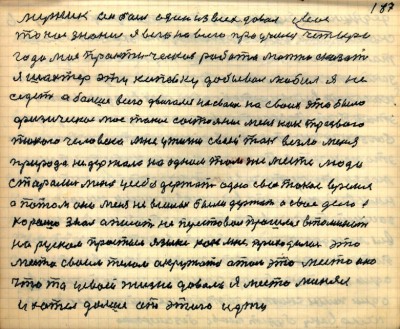 187
мужик он был один из всех довал свое
то кое знания я всего на всего продумал четыре
года моя практическоя работа можно сказать
я шахтер эту копейку добывал любил я не
сидеть а больше всего двигался на своих это было
физическое мое такое состояния меня как трезвого
такого человека мне в жизни своей так везло меня
природа не держала на одном том же месте люди
старались меня у себя держать одно свое такое время
а потом они меня не вешили были держать а свое дело я
хорошо знал а писать не пустовал прошлая вспоминать
на русском простым языке как мне приходилось это
место своим телом окружать а там это место оно
что то целой жизни довала я место менял
и хотел дольше от этого идти